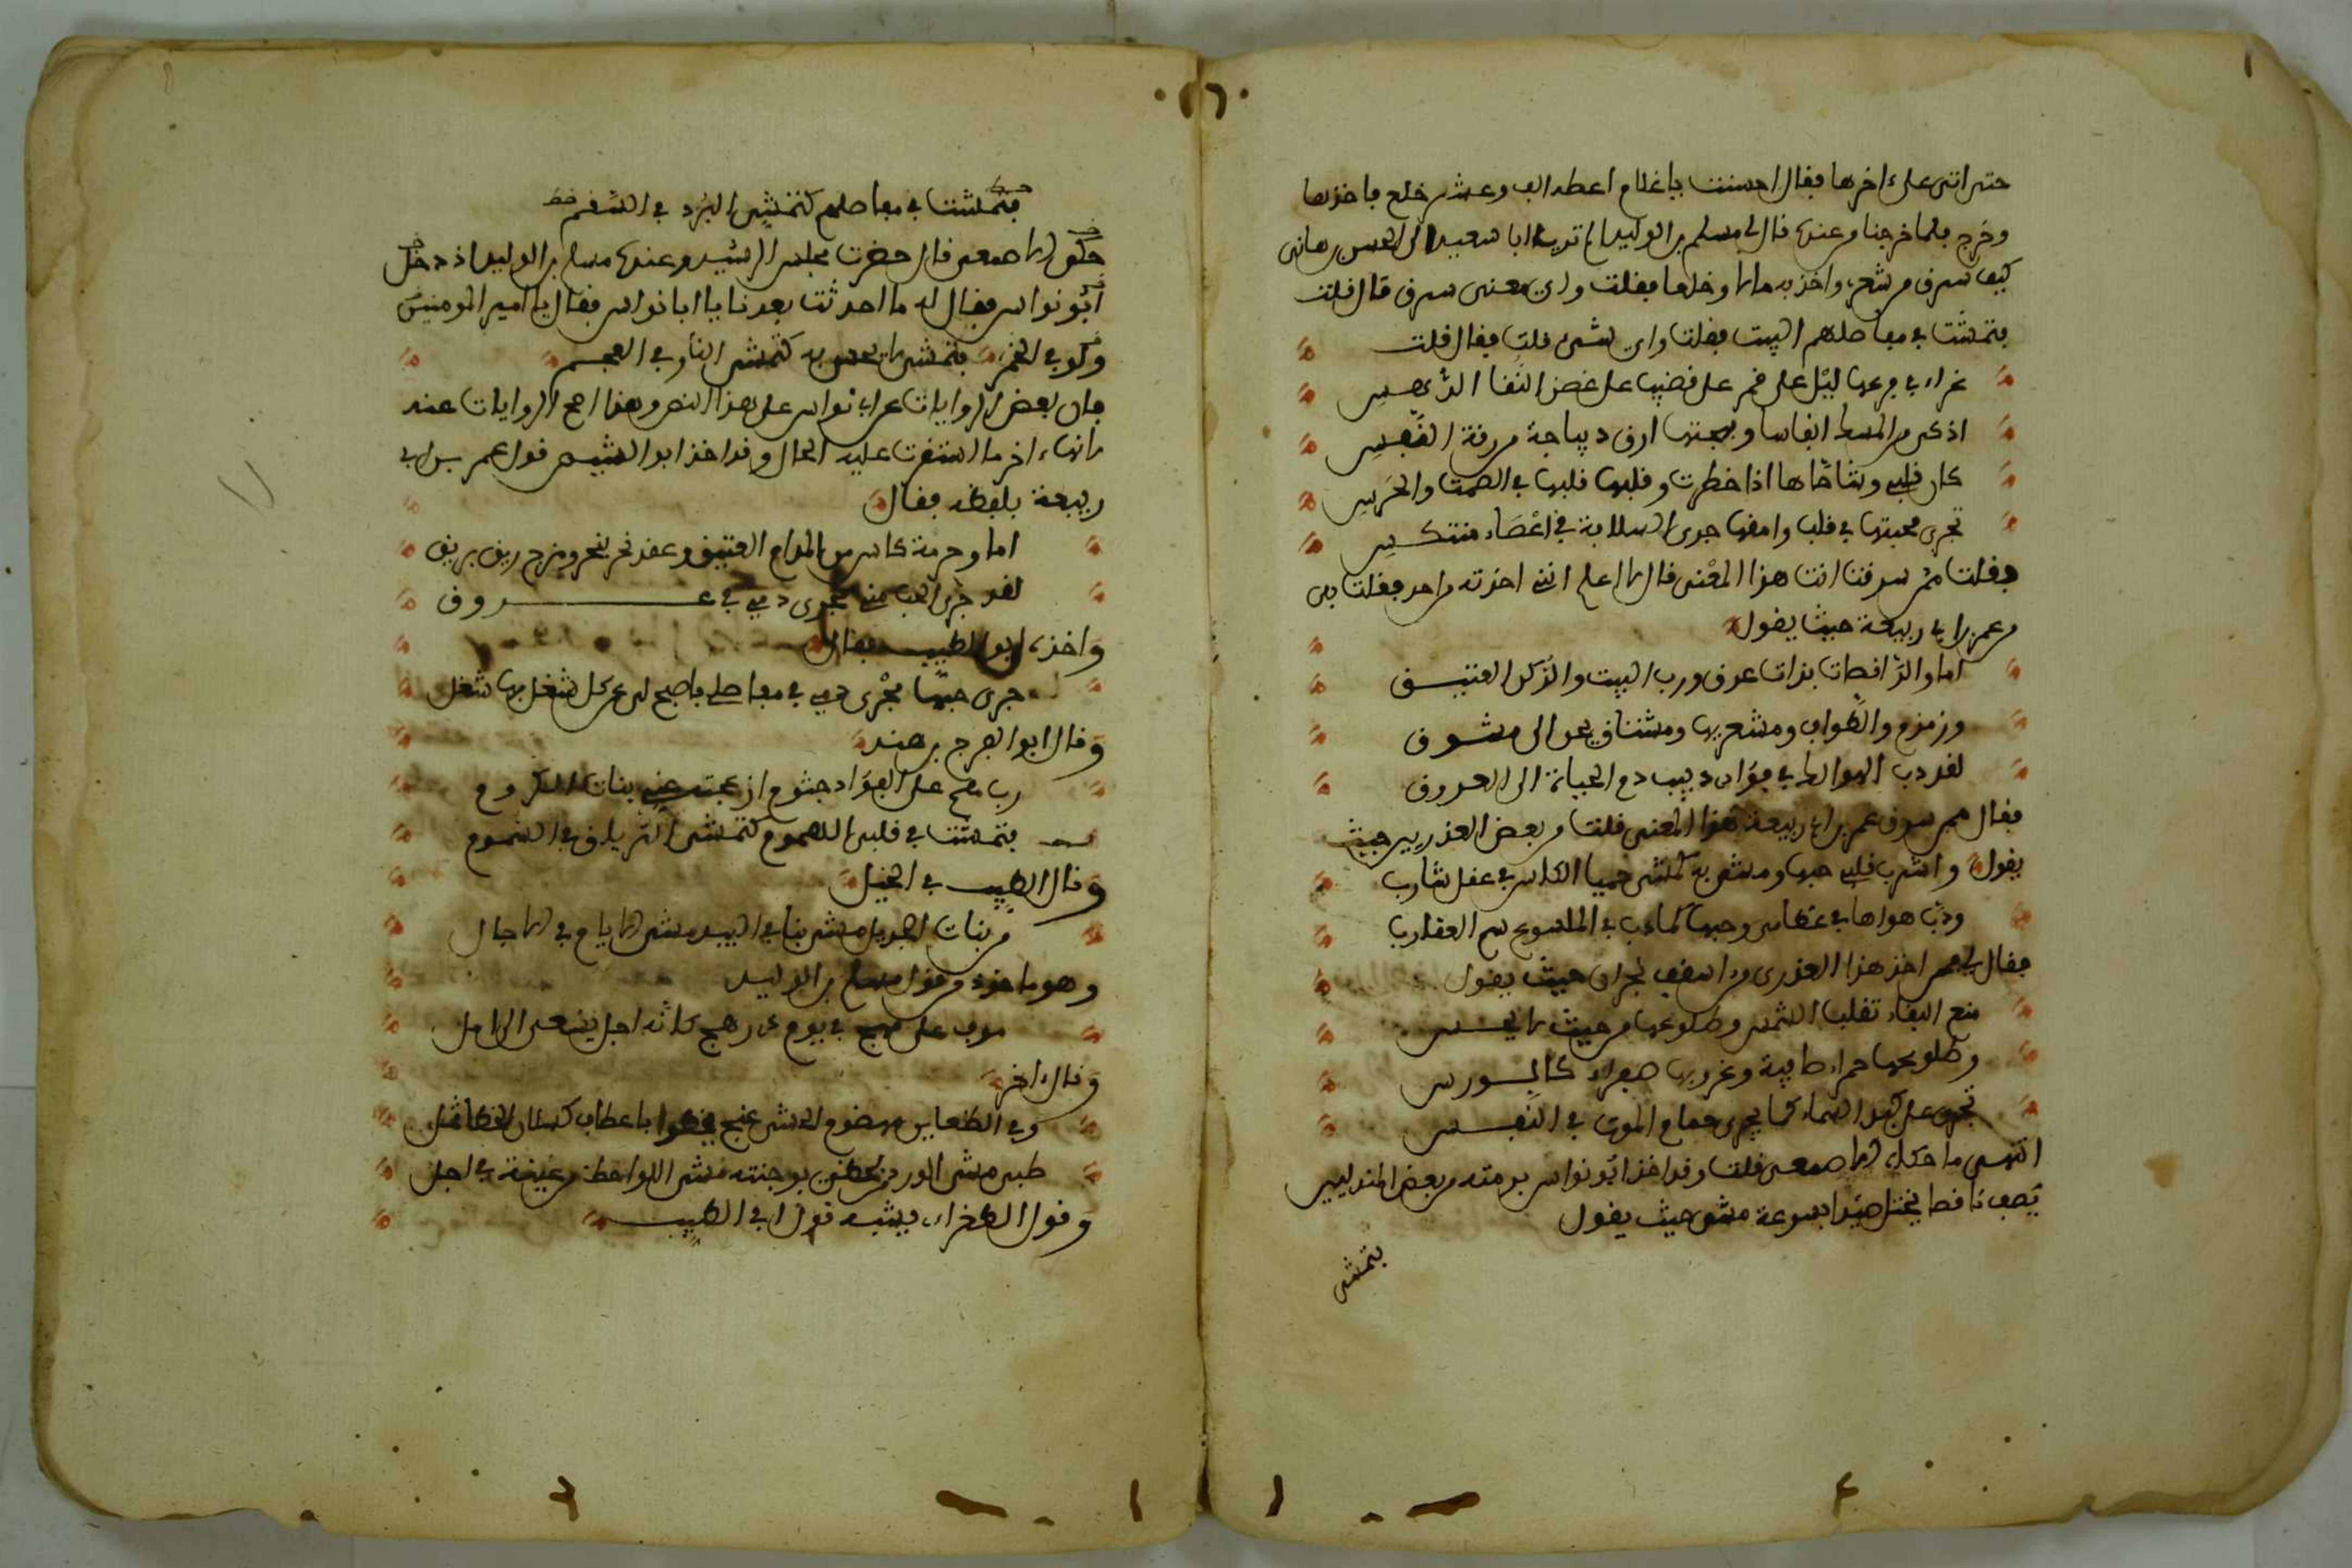 حتى اتى على ءاخرها فقال احسنت يا غلام اعطه الف وعشر خلع فاخذها
وخرج فلما خرجنا من عنده قال لي مسلم بن الوليد الم تر يا ابا سعيد الى الحسن بن هانى
كيف سرق من شعرى واخذ به مالا وخلعا فقلت واي معنى سرق قال قلت
فتمشت في مفاصلهم البيت فقلت واي شىء قلت فقال قلت
غراء في فرعها ليل على قمر على قضيب على غصن النقا الدهس
اذكى من المسك انفاسا وبهجتها ارق ديباجة من رقة النفس
كان قلبي وشاحاها اذا خطرت وقلبها قلبها في الصمت والخرس
تجرى محبتها في قلب وامقها جرى السلامة في اعضاء منتكس
فقلت ممن سرقت انت هذا المعنى قال لا اعلم اني اخذته من احد فقلت بلى
من عمر بن ابي ربيعة حيث يقول
اما والراقصات بذات عرق ورب البيت والركن العتيق
وزمزم والطواف ومشعريها ومشتاق يحن الى مشوق
لقد دب الهوا لك في فؤادى دبيب دم الحياة الى العروق
فقال ممن سرق عمر بن ابي ربيعة هذا المعنى قلت من بعض العذريين حيث
يقول واشرب قلبي حبها ومشى به كمشى حميا الكاس في عقل شارب
ودب هواها في عظامى وحبها كما دب في الملسوع سم العقارب
فقال لي ممن اخذ هذا العذرى من اسقف نجران حيث يقول
منع البقاء تقلب الشمس وطلوعها من حيث لا تمسى
وطلوعها حمراء صافية وغروبها صفراء كالورس
تجرى على كبد السماء كما يجرى حمام الموت في النفس
انتهى ما حكاه الاصمعى قلت وقد اخذ ابو نواس برمته من بعض الهذليين
يصف قانصا يختل صيدا بسرعة مشى حيث يقول
فتمشى
فتمشت في مفاصلهم كتمشى البرء في السقم
حكى الاصمعى قال حضرت مجلس الرشيد وعنده مسلم بن الوليد اذ دخل
ابو نواس فقال له ما احدثت بعدنا يا ابا نواس فقال يا امير المومنين
ولو في الخمر فتمشى لا يحس به كتمشى النار في الفحم
فان بعض الروايات عن ابي نواس على هذا النص وهذا اصح الروايات عنه
لانها ءاخر ما استقرت عليه الحال وقد اخذ ابو الشيص قول عمر بن ابي
ربيعة بلفظه فقال
اما وحرمة كاس من المدام العتيق وعقد نحر بنحر ومزج ريق بريق
لقد جرى الحب منى مجرى دمي في عروق
واخذه ابو الطيب فقال
جرى حبها مجرى دمي في مفاصلي فاصبح لي عن كل شغل بها شغل
وقال ابو الفرج بن هند
رب هم على الفؤاد جثوم ازعجته عنى بنات الكروم
فتمشت في قلبي المهموم كتمشى الترياق في السموم
وقال الطيب في الخيل
من بنات الجديل تمشى بنا في البيد مشى الايام في الاجال
وهو ماخوذ من قول مسلم بن الوليد
موف على مهج في يوم ذى رهج كانه اجل يسعى الى امل
وقال ءاخر
وفي الظعاين مهضوم الحشى غنج
طبى مشى الورد من لحظى بوجنته مشى اللواحظ من عينيه في اجل
وقول الطغراء، يشبه قول ابي الطيب